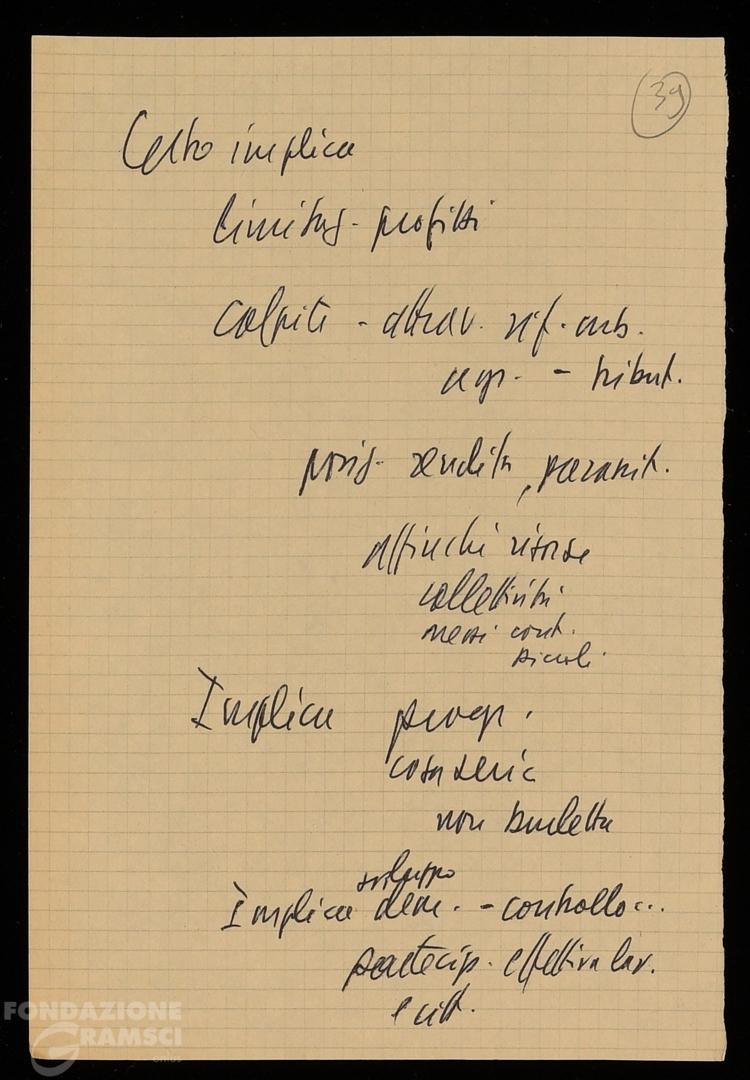 39
Certo implica
limitaz. profitti
colpiti - attrav. rif. urb.
agr. - tribut.
posiz. rendita, parassit.
affinché risorse
collettività
messi cont.
piccoli
Implica progr.
cosa seria
non burletta
sviluppo
Implica dem. - controllo...
partecip. effettiva lav.
e citt.
FONDAZIONE
GRAMSCI
onlus